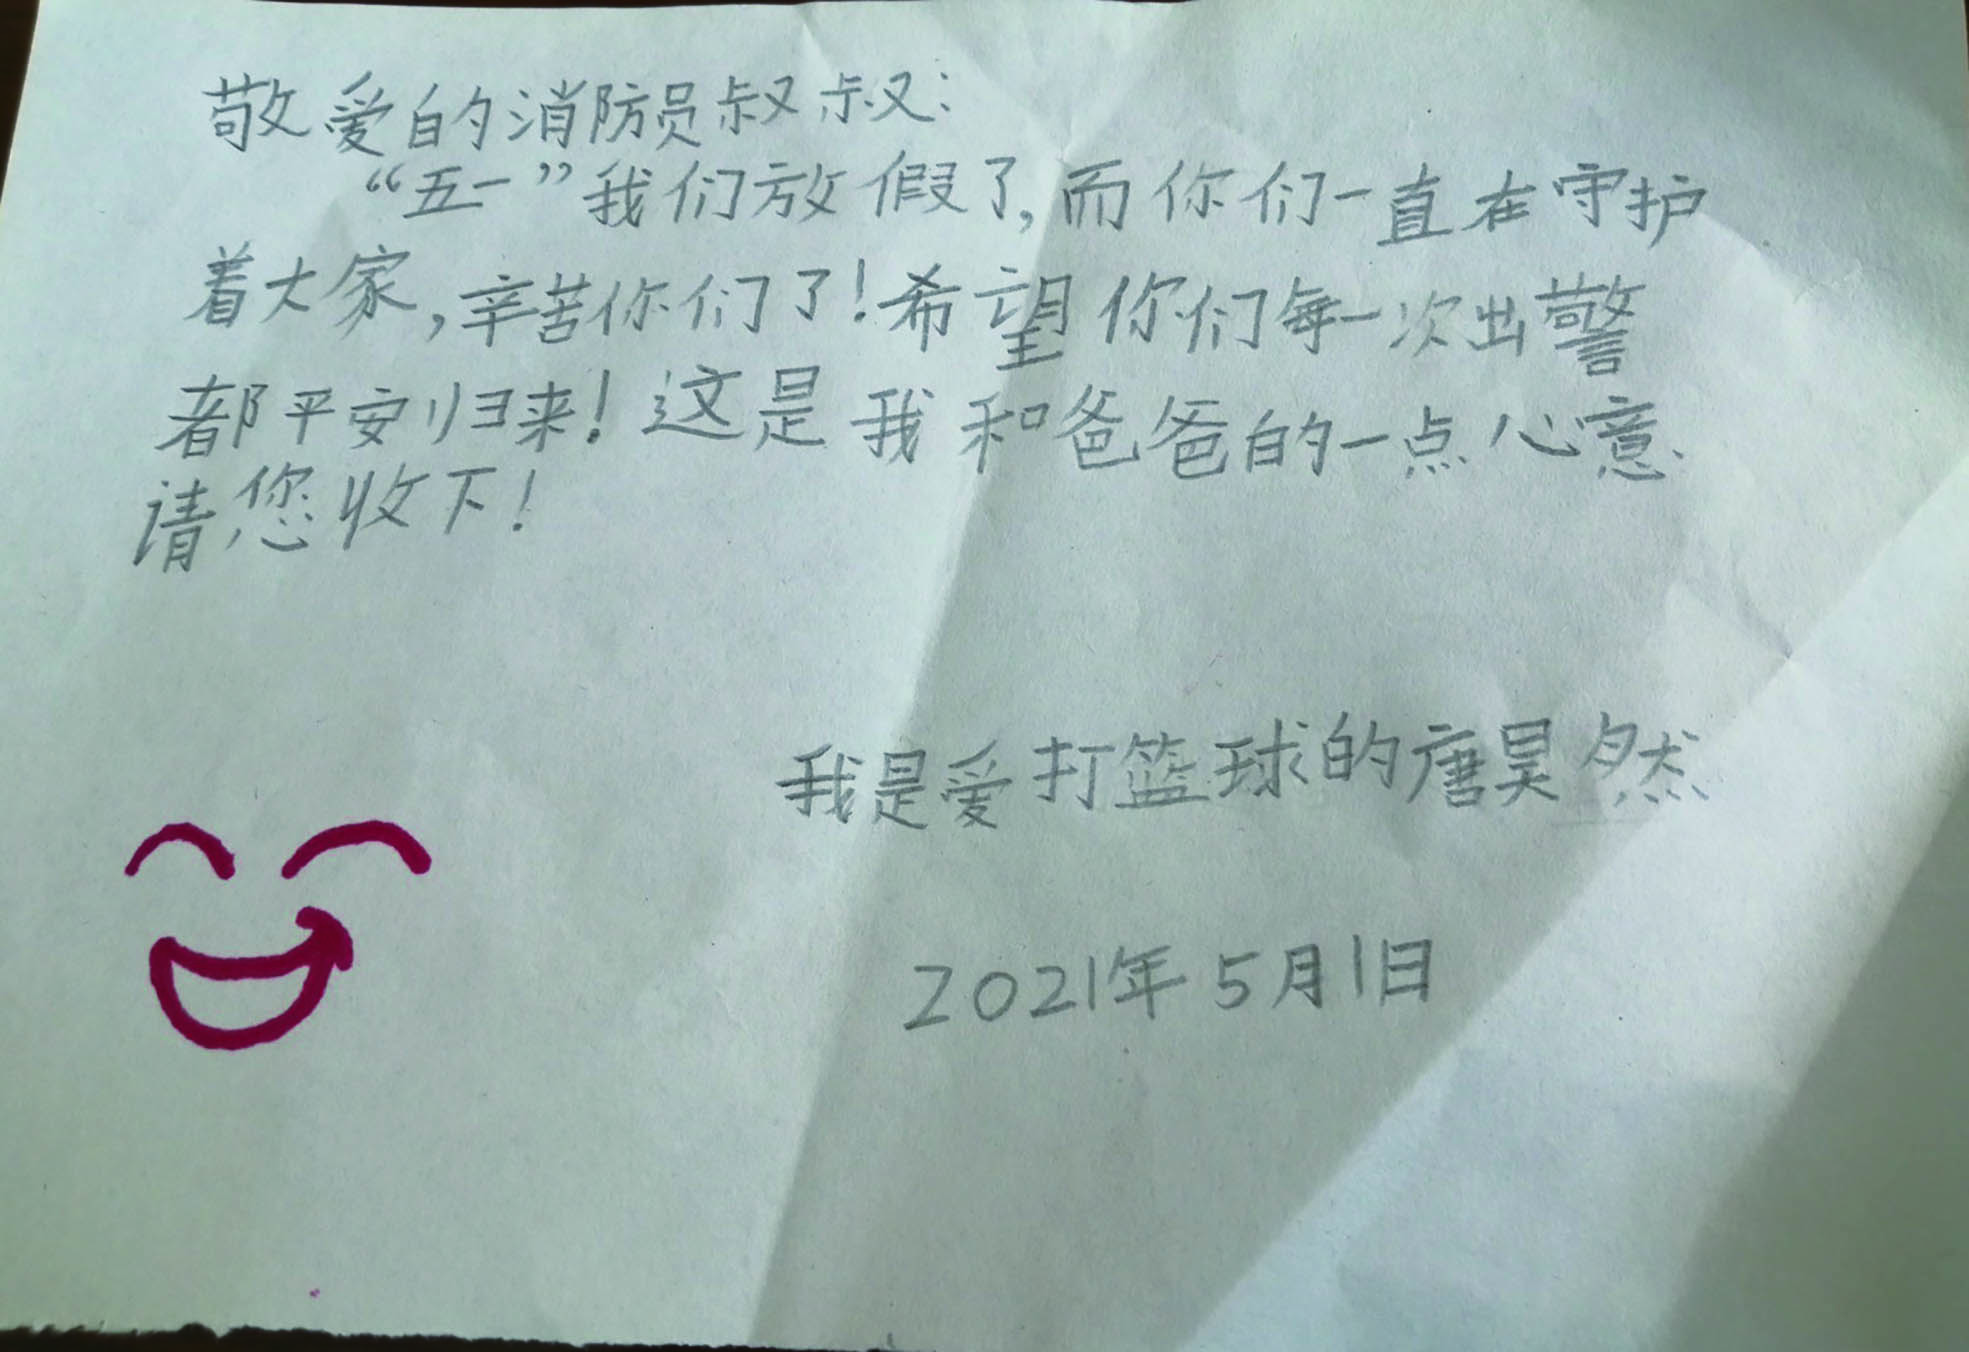 敬爱的消防员叔叔:
“五一”我们放假了,而你们一直在守护
着大家,辛苦你们了!希望你们每一次出警
都平安归来!这是我和爸爸的一点心意.
请您收下!
我是爱打篮球的唐昊然
2021年5月1日